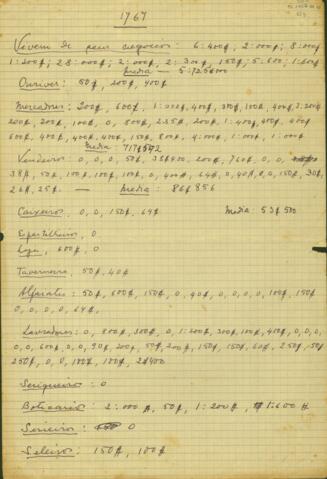 1767
Vivem de seus negocios: 6:400$, 2:000$; 8:000$
1:200$; 28:000$; 2:000$, 2:300$, 150$; 5:600; 1:600$
Media — 5:725$000
Ourives: 50$, 200$, 400$
Mercadores: 200$, 600$, 1:000$, 400$, 350$, 100$, 400$, 7:200$
200$, 200$, 100$, 0, 800$, 235$, 200$, 1:400$, 450$, 600$
600$, 400$, 400$, 400$, 150$, 800$, 4:000$, 1:000$, 1:000$
Media: 717$592
Vendeiros: 0, 0, 0, 50$, 38$400, 200$, 760$, 0, 0,
38$, 50$, 100$, 100$, 100$, 0, 400$, 64$, 0, 40$, 0, 0, 150$, 30$,
26$, 25$. — Media: 86$856
Caixeiros: 0, 0, 150$, 64$ Media: 53$500
, 0
Loja, 600$, 0
Taverneiro, 50$, 40$
Alfaiates: 50$, 600$, 150$, 0, 40$, 0, 0, 0, 0, 100$, 150$
0, 0, 0, 0, 64$,
Lavradores: 0, 800$, 300$, 0, 1:200$, 300$, 100$, 410$, 0, 0, 0,
0, 0, 600$, 0, 0, 90$, 200$, 50$, 200$, 150$, 150$, 60$, 250$, 50$
250$, 0, 0, 100$, 100$, 2$400
Serigueiro: 0
Boticario: 2:000$, 50$, 1:200$, 1:600$
0
Seleiro: 150$, 100$